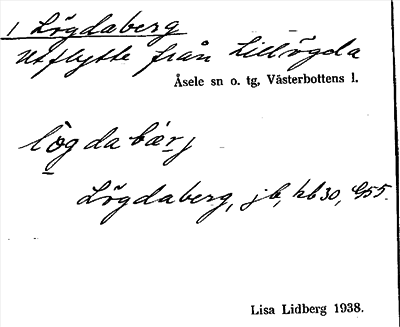 1 Lögdaberg
Utflytte från Lillögda
Åsele sn o. tg, Västerbottens l.
lögdabærj
Lögdaberg, jb, hb 30, G55.
Lisa Lidberg 1938.